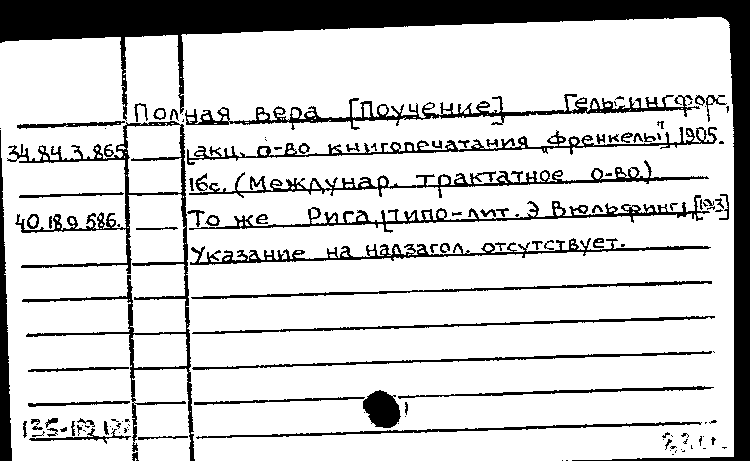 Полная вера [Поучение] Гельсингфорс,
34.84.3.865 [акц. о-во книгопечатания „Френкель"], 1905.
16с. (Междунар. трактатное о-во)
40.18.9.586. То же Рига, [типо-лит. Э Вюльфинг],
Указание на надзагол. отсутствует.